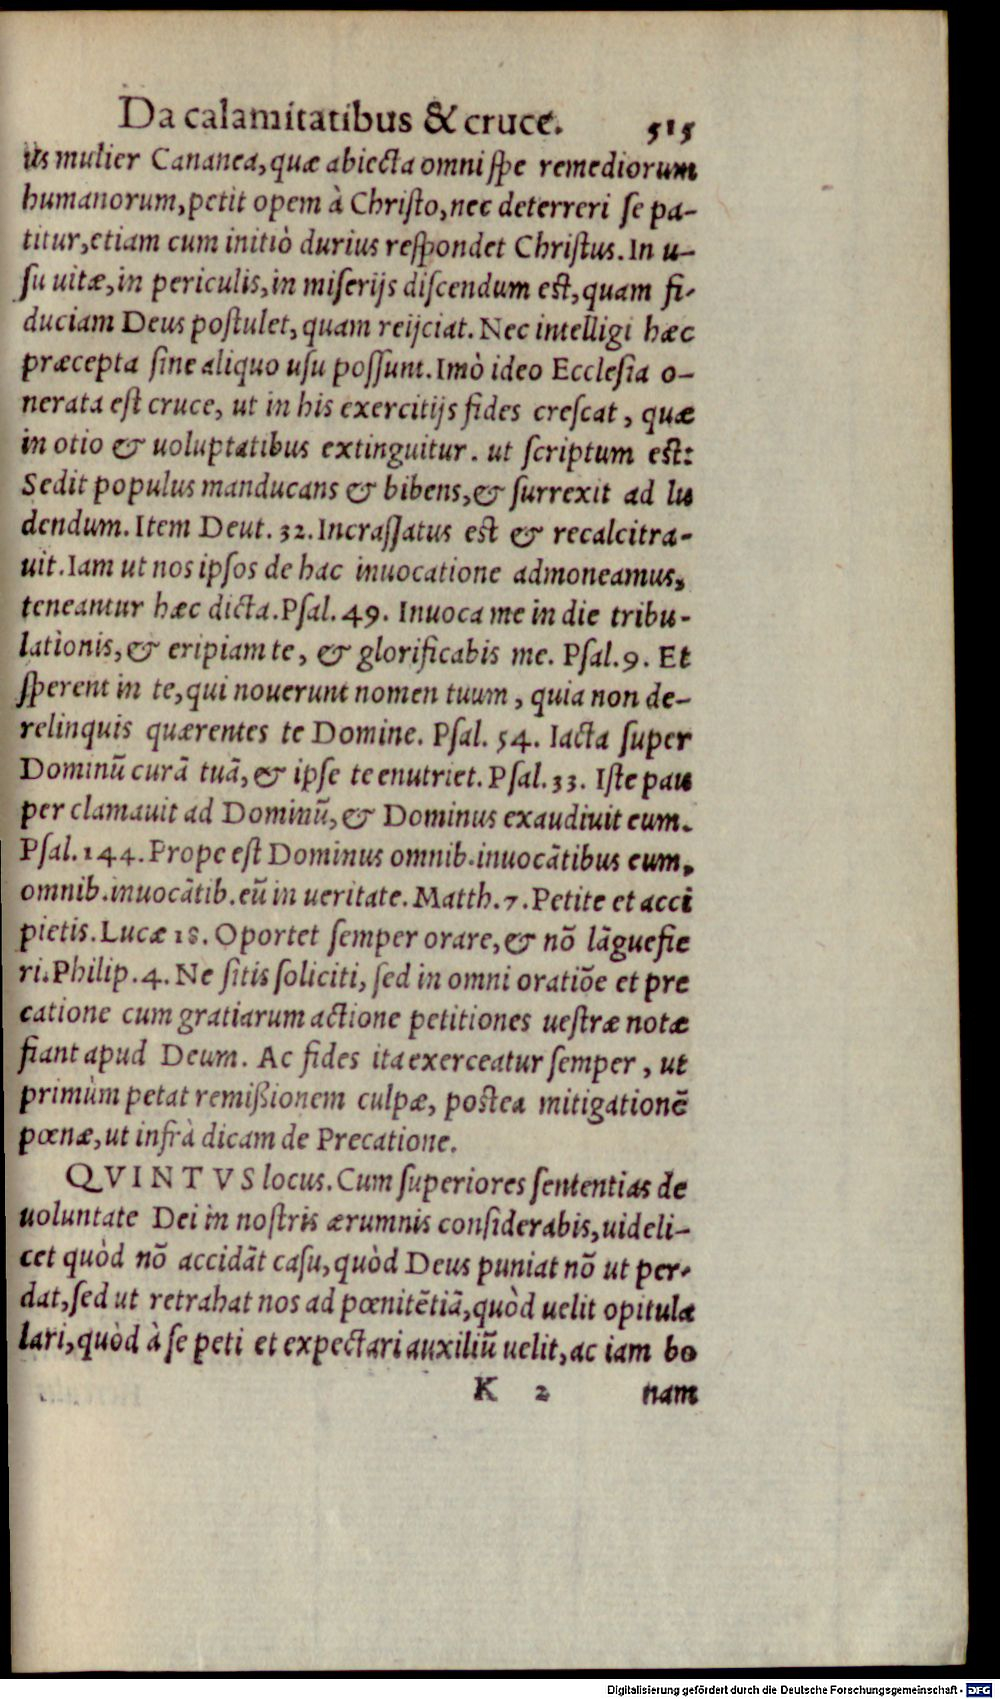 Da calamitatibus & cruce. 515
us mulier Cananea, quæ abiecta omni ſpe remediorum
humanorum, petit opem à Chriſto, nec deterreri ſe pa-
titur, etiam cum initiò durius reſpondet Chriſtus. In u-
ſu uitæ, in periculis, in miſerijs diſcendum eſt, quam fi-
duciam Deus poſtulet, quam reijciat. Nec intelligi hæc
præcepta ſine aliquo uſu poſſunt. Imò ideo Eccleſia o-
nerata eſt cruce, ut in his exercitijs fides creſcat, quæ
in otio & uoluptatibus extinguitur. ut ſcriptum eſt:
Sedit populus manducans & bibens, & ſurrexit ad lu
dendum. Item Deut. 32. Incraſſatus eſt & recalcitra-
uit. Iam ut nos ipſos de hac inuocatione admoneamus,
teneantur hæc dicta. Pſal. 49. Inuoca me in die tribu-
lationis, & eripiam te, & glorificabis me. Pſal. 9. Et
ſperent in te, qui nouerunt nomen tuum, quia non de-
relinquis quærentes te Domine. Pſal. 54. Iacta ſuper
Dominũ curã tuã, & ipſe te enutriet. Pſal. 33. Iſte pau
per clamauit ad Dominũ, & Dominus exaudiuit eum.
Pſal. 144. Prope eſt Dominus omnib. inuocãtibus eum,
omnib. inuocãtib. eũ in ueritate. Matth. 7. Petite et acci
pietis. Lucæ 18. Oportet ſemper orare, & nõ lãguefie
ri. Philip. 4. Ne ſitis ſoliciti, ſed in omni oratiõe et pre
catione cum gratiarum actione petitiones ueſtræ notæ
fiant apud Deum. Ac fides ita exerceatur ſemper, ut
primùm petat remißionem culpæ, poſtea mitigationẽ
pœnæ, ut infrà dicam de Precatione.
QVINTVS locus. Cum ſuperiores ſententias de
uoluntate Dei in noſtris ærumnis conſiderabis, uideli-
cet quòd nõ accidãt caſu, quòd Deus puniat nõ ut per-
dat, ſed ut retrahat nos ad pœnitẽtiã, quòd uelit opitula
lari, quòd à ſe peti et expectari auxiliũ uelit, ac iam bo
K 2 nam
Digitalisierung gefördert durch die Deutsche Forschungsgemeinschaft - DFG